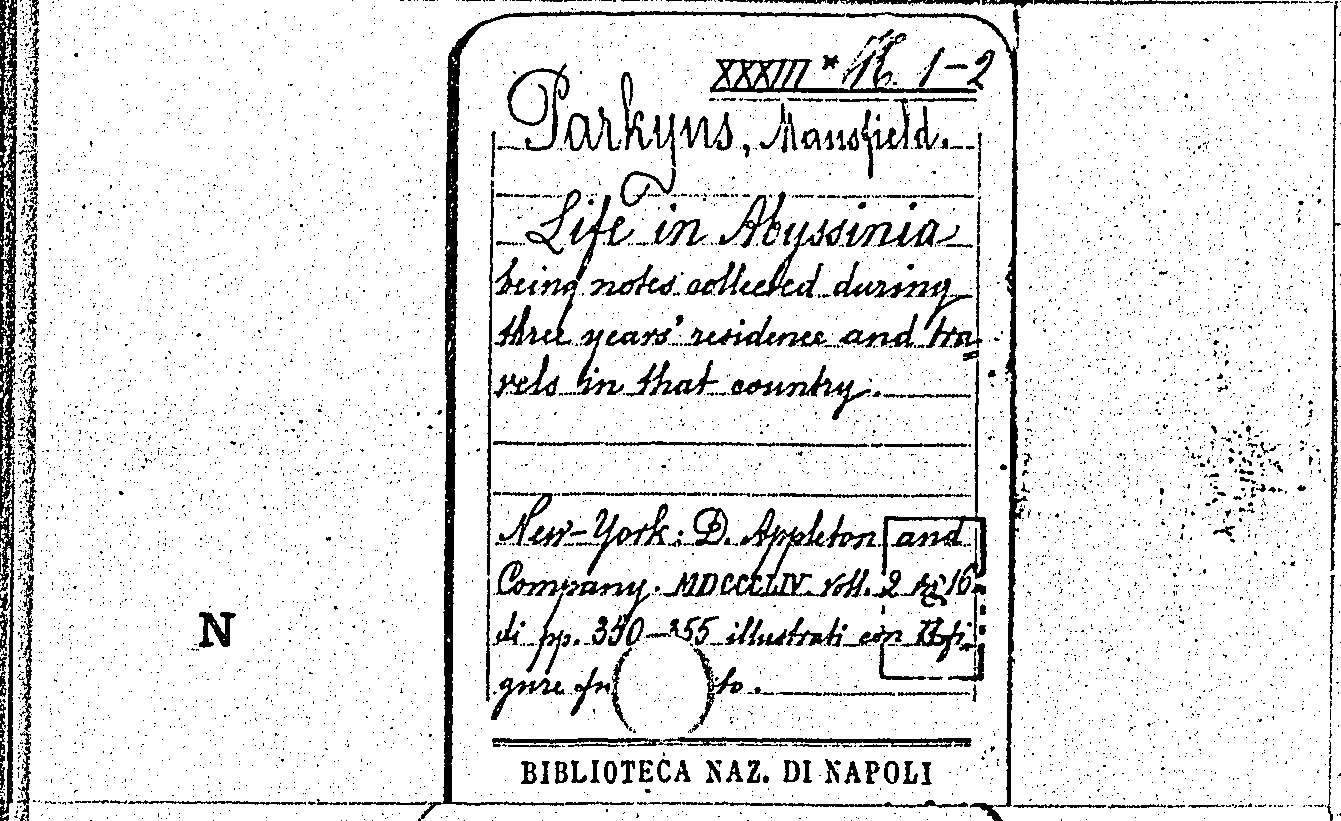 XXXIII * H. 1-2
Parkyns, Mansfield.
Life in Abyssinia
being notes collected during
three years' residence and tra=
vels in that country.
New-York: D. Appleton and
Company. MDCCCLIV. voll. 2 16
di pp. 350-355 illustrati con fi
gure fu to.
N
BIBLIOTECA NAZ. DI NAPOLI